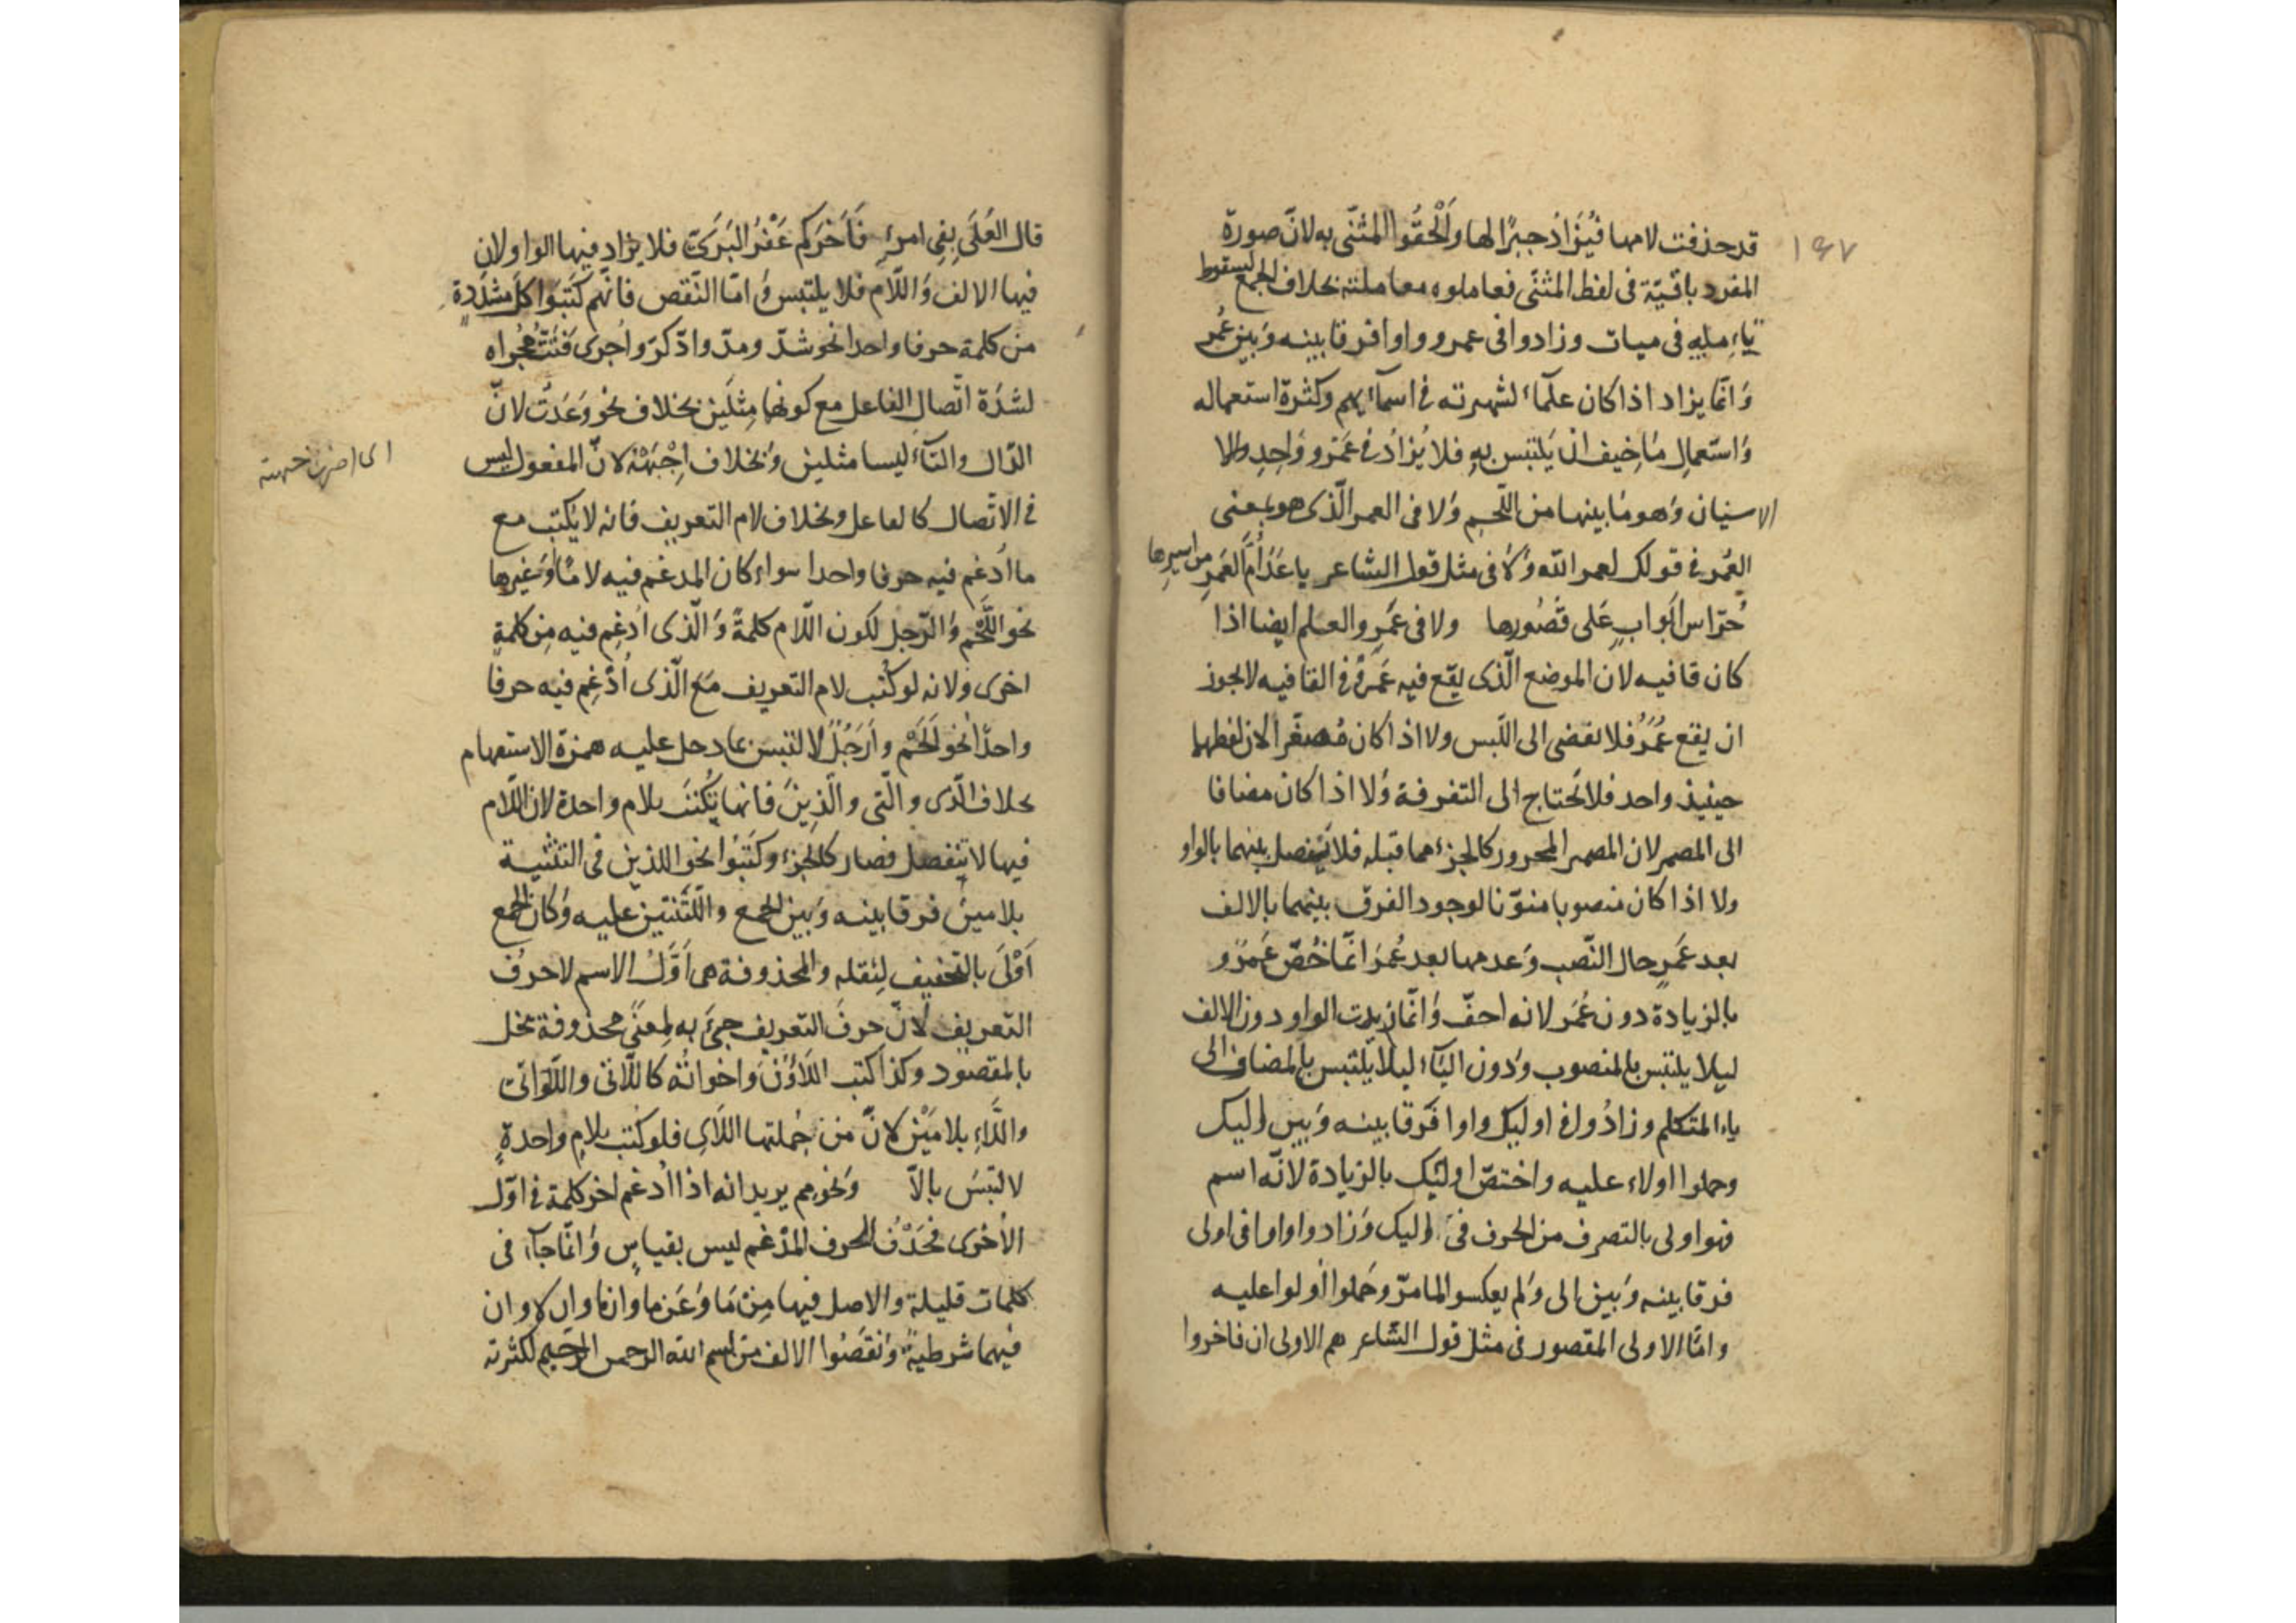 ١٩٧
قد حذفت لامها فيُزَادُ جبرًا لها وَأَلْحَقُوا المثنّى به لانّ صورة
المفرد باقيّة فى لفظ المثنّى فعاملوه معاملته بخلاف الجمع لسقوط
تاء مايه فى ميات وزادوا فى عمرو واوا فرقا بينه وَبين عُمر
وَانّما يزاد اذا كان علمًا لشهرته فى اسمآئهم وكثرة استعماله
وَاستعمال مَا خيف ان يَلتبس بِهِ فلا يُزَادُ فى عَمْرو وَاحِدِ
الاسنان وَهو مَا بينها من اللّحم وَلا فى العمر الّذى هو بمعنى
العُمر فى قولك لعمر الله وَلا فى مثل قول الشاعر باعَدَ أُمَّ العَمرِ من اسيرها
حُرّاس ابوابٍ عَلى قُصُورها ولا فى عَمرٍو العلم ايضا اذا
كان قافيه لان الموضع الّذى يقع فيه عَمرٌو فى القافيه لا يجوز
ان يقع عُمَرُ فلا نفضى الى اللّبس ولا اذا كان مُصغّرا لان لفظهما
حينيذ واحد فلا تحتاج الى التفرقة وَلا اذا كان مضافا
الى المضمر لان المضمر المجرور كالجزء مما قبله فلا يفصل بينهما بالواو
ولا اذا كان منصوبا منوّنا لوجود الفرق بينهما بالالف
بعد عَمرٍ حال النّصب وَعدمها بعد عُمَر انّما خُصّ عَمرٌو
بالزيادة دون عُمَر لانه اخفّ وَانّما زيدت الواو دون الالف
ليلا يلتبس بالمنصوب وَدون اليَآء ليلا يلتبس بالمضاف الى
ياء المتكلم وزادُوا فى اوليك واوا فَرقا بينه وَبين اليك
وحملوا اولاء عليه واختصّ اوليك بالزيادة لانّه اسم
فهو اولى بالتصرف من الحرف فى اليك وَزادوا واوا فى اولى
فرقا بينه وَبين الى وَلم يعكسوا لما مرّ وحَملوا أولوا عليه
وامّا الاولى المقصور فى مثل قول الشّاعر هم الاولى ان فاخروا
قال العُلَى بِفِى امرءٍ فَاخَركم عَفْرُ البَرَى فلا يزاد فيها الواو لان
فيها الالف وَاللّام فلا يلتبس وَامّا النّقص فانّهم كَتبَوا كلّ مشدّدة
من كلمة حرفا واحدا نحو شدّ ومدّ وادّكرّ وأجرى قَتَتُّ مُجراه
لشدّة اتّصال الفاعل مع كونهما مِثلَين بخلاف نحو وَعَدتُ لانّ
الدّال والتآء ليسا مثلين وَبخلاف اِجْبَهْهُ لانّ المفعول ليس
اى اضرب جبهته
فى الاتّصال كالفاعل وبخلاف لام التعريف فانه لا يكتب مع
ما ادُغم فيه حرفا واحدا سواء كان المدغم فيه لامًا أوغيرها
نحو اللَّحْم وَالرّجل لكون اللّام كلمةً وَالّذى اُدغِم فيه مِن كلمةٍ
اخرى وَلانه لو كُتب لام التعريف مَع الّذى اُدْغِم فيه حرفًا
واحدًا نحو لَحْم وارَجُلٌ لالتبس بما دخل عليه همزة الاستفهام
بخلاف الّذى والّتى والّذِينَ فانها تُكتَبُ بلام واحدة لان اللّام
فيها لا ينفصل فصار كالجزء وكَتَبُوا نحو اللذين فى التثنية
بلامين فرقا بينه وَبين الجمع واللّتَينِ عليه وَكان الجمع
اَوْلَى بالتخفيف لِثقله والمحذوفة هى اَوَّلُ الاسم لا حرف
التعريف لانّ حرفَ التعريف جىَ به لمعنًى محذوفة تخل
بالمقصود وكذا كتب اللَاؤُنَ واخواتُه كاللّاتى واللّوَاتى
واللّاءِ بلامَيْن لانّ من جُملتها اللّاىِ فلو كتب بلامٍ واحدةٍ
لالتبَسَ بالاّ وَنحو مِم يريد انه اذا اُدغم اخر كلمة فى اوّل
الأخرى فحَذْفُ الحرف المدّغم ليس بقياسٍ وَانّما جآء فى
كلمات قليلة والاصل فيها مِن مَا وَعَن ما وان ما وان لا وان
فيهما شرطيةٌ وَنَقَصُوا الالف من بسم الله الرحمن الرّحيم لكثرته